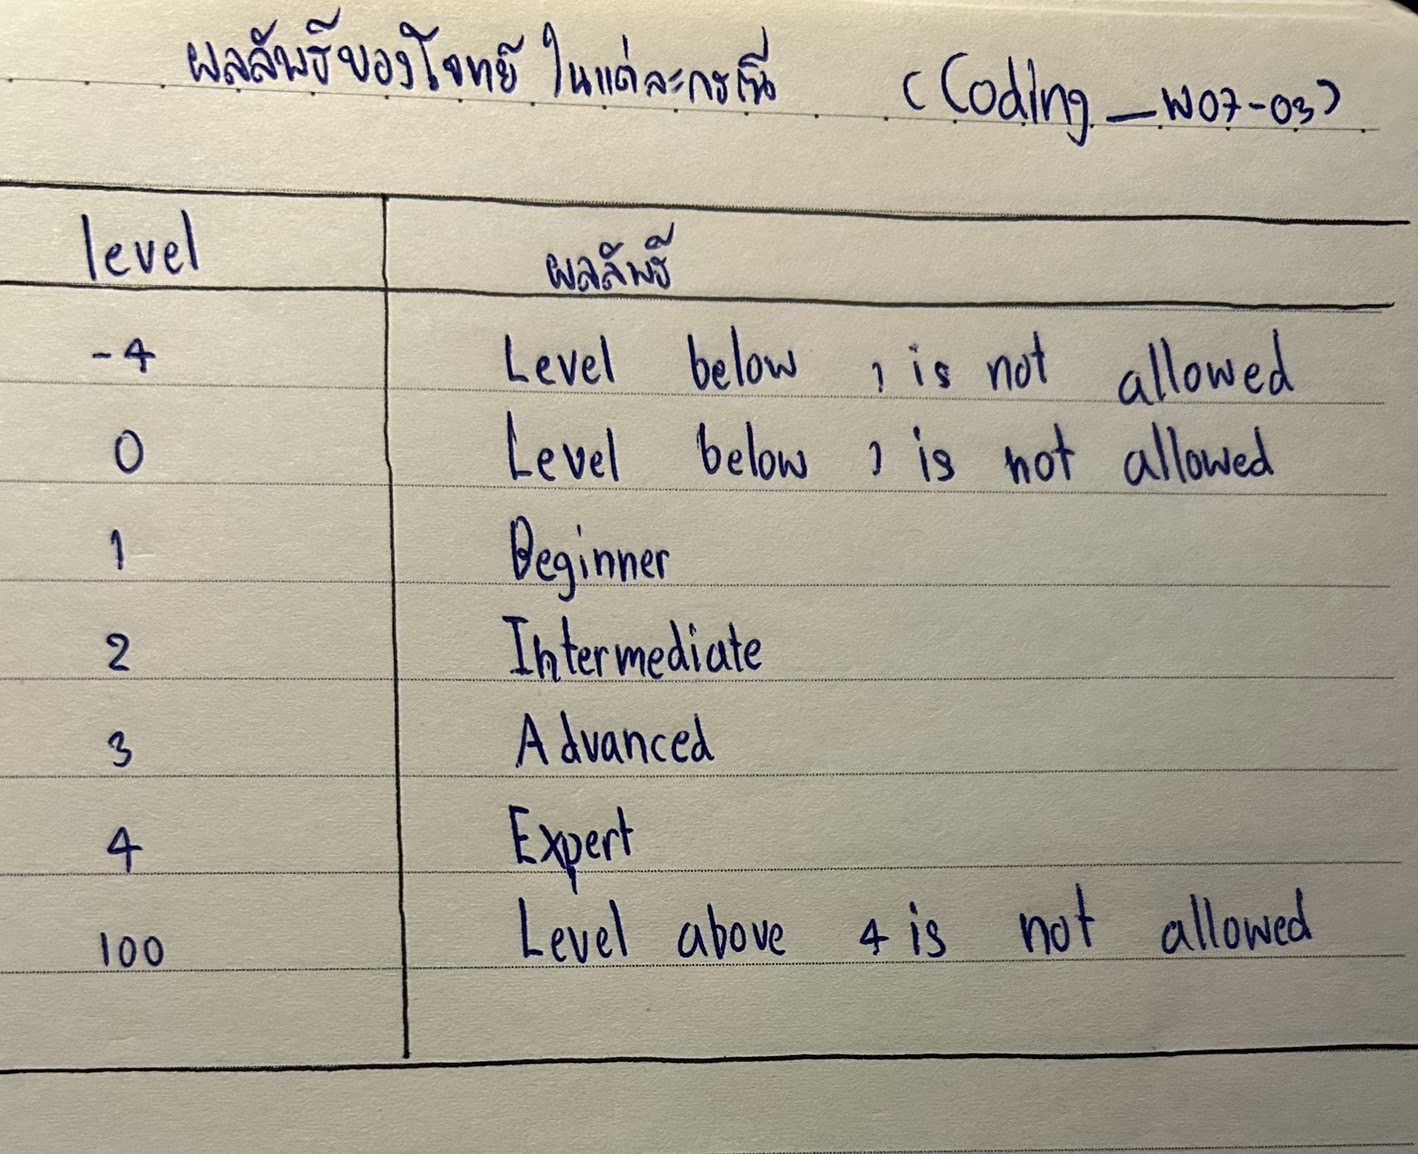 ผลลัพธ์ของโจทย์ ในแต่ละกรณี (Coding_W07-03)
level ผลลัพธ์
-4 Level below 1 is not allowed
0 Level below 1 is not allowed
1 Beginner
2 Intermediate
3 Advanced
4 Expert
100 Level above 4 is not allowed